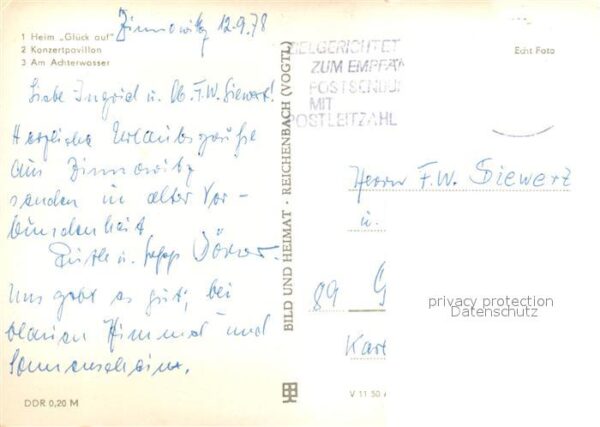 Zinnowitz 12.9.78
1 Heim „Glück auf"
2 Konzertpavillon
3 Am Achterwasser
Liebe Ingrid u. Ob. F.W. Siewerz!
Herzliche Urlaubsgrüße
aus Zinnowitz
senden in alter Ver-
bundenheit
u. Sepp
Uns geht es gut, bei
blauen Himmel und
Sonnenschein.
DDR 0,20 M
BILD UND HEIMAT · REICHENBACH (VOGTL)
ZIELGERICHTET
ZUM EMPFÄN
POSTSENDUN
MIT
POSTLEITZAHL
Echt Foto
Herrn F.W. Siewerz
u.
89 G
Kart
V 11 50
privacy protection
Datenschutz